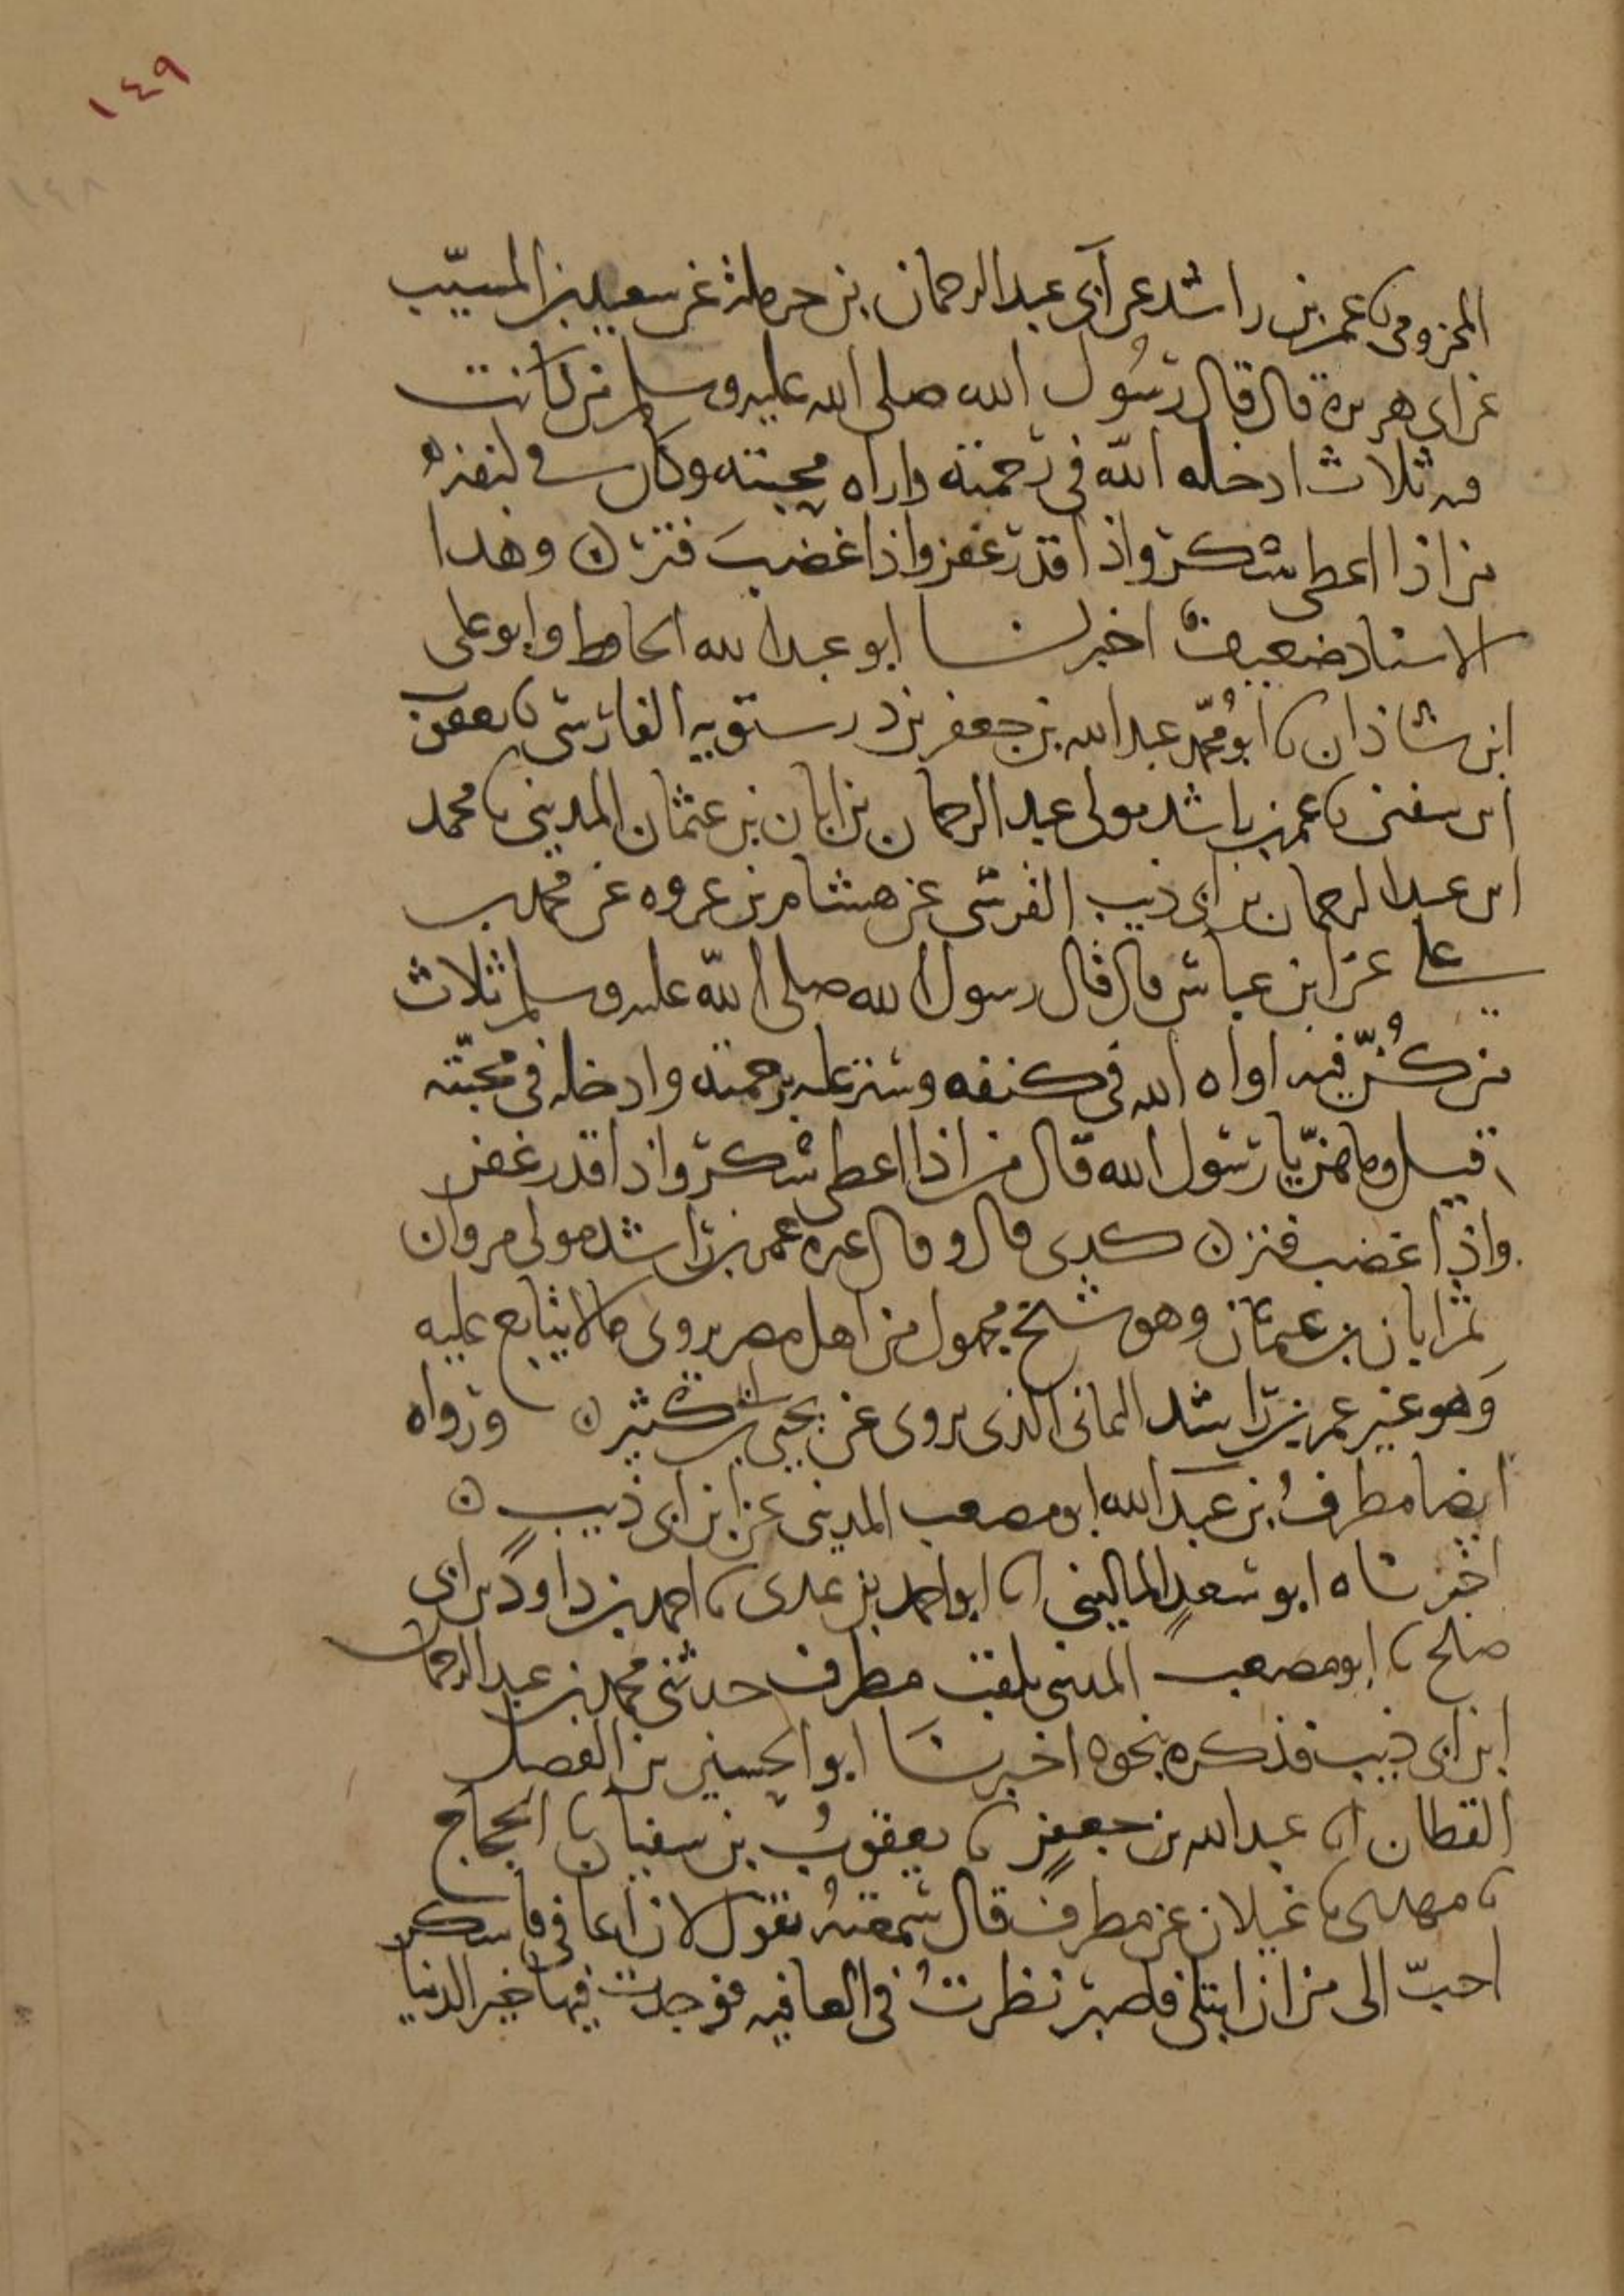 ١٤٩
١٤٨
المخزومى نا عمر بن راشد عن ابى عبد الرحمان بن حرملة عن سعيد بن المسيّب
عن ابى هريرة قال قال رسُول الله صلى الله عليه وسلم من كانت
فيه ثلاث ادخله الله في رحمته واراه محبته وكان في كنفه
من اذا اعطى شكر واذا اقدر غفر واذا غضب فتر ن وهدا
الاسناد ضعيف اخبرنا ابو عبد الله الحافظ وابو على
ابن شاذان نا ابو محمّد عبد الله بن جعفر بن درستويه الفارسى نا يعقوب
ابن سفين نا عمر بن راشد مولى عبد الرحمان بن ابان بن عثمان المدينى نا محمد
ابن عبد الرحمان بن ابى ذيب القرشى عن هشام بن عروه عن محمد بن
على عن ابن عباس قال قال رسول الله صلى الله عليه وسلم ثلاث
من كُنّ فيه اواه الله في كنفه وستر عليه برحمته وادخله في محبّته
قيل وما هنّ يا رسول الله قال من اذا اعطى شكر واذا قدر غفر
واذا غضب فتر ن كدى قال وقال غيره عمر بن راشد مولى مروان
بن ابان بن عثمان وهو شيخ مجهول من اهل مصر يروى ما لا يتابع عليه
وَهو غير عمر بن راشد اليمانى الذى يروى عن يحيى بن ابى كثير ن ورواه
ايضا مطرفُ بن عبد الله ابو مصعب المدينى عن ابن ابى ذيب ن
اخبرناه ابو سعدٍ المالينى انا ابو احمد بن عدى نا احمد بن داود بن ابى
صلح نا ابو مصعب المدينى يلقب مطرف حدثنى محمد بن عبد الرحمان
ابن ابى ذيب فذكره بنحوه اخبرنا ابو الحسين بن الفضل
القطان انا عبد الله بن جعفرٍ نا يعقوبُ بن سفيان نا الحجاج
نا مهدى نا غيلان عن مطرف قال سمعتهُ يقول لان اعافى فاشكر
احبّ الى من ان ابتلى فاصبر نظرتُ في العافيه فوجدت فيها خير الدنيا